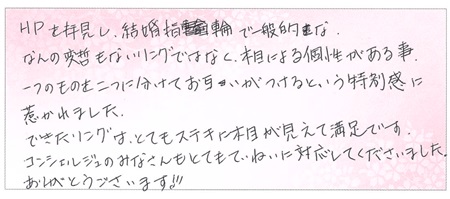 HPを拝見し、結婚指輪で一般的な
なんの変哲もないリングではなく、木目による個性がある事、
一つのものを二つに分けてお互いがつけるという特別感に
惹かれました。
できたリングは、とてもステキに木目が見えて満足です。
コンシェルジュのみなさんもとてもていねいに対応してくださいました。
ありがとうございます!!!